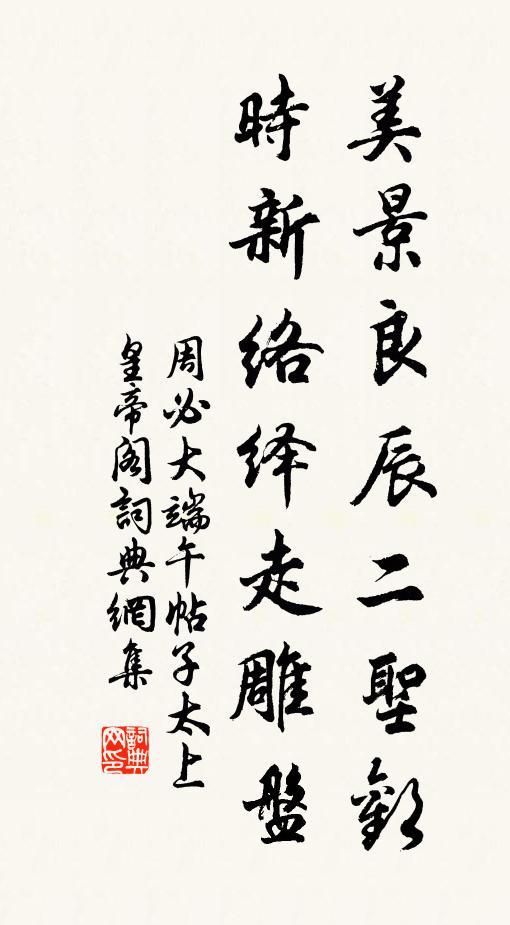 美景良辰二聖歡
時新络绎走雕盤
周必大端午帖子太上
皇帝阁詞典網集
詞典网印